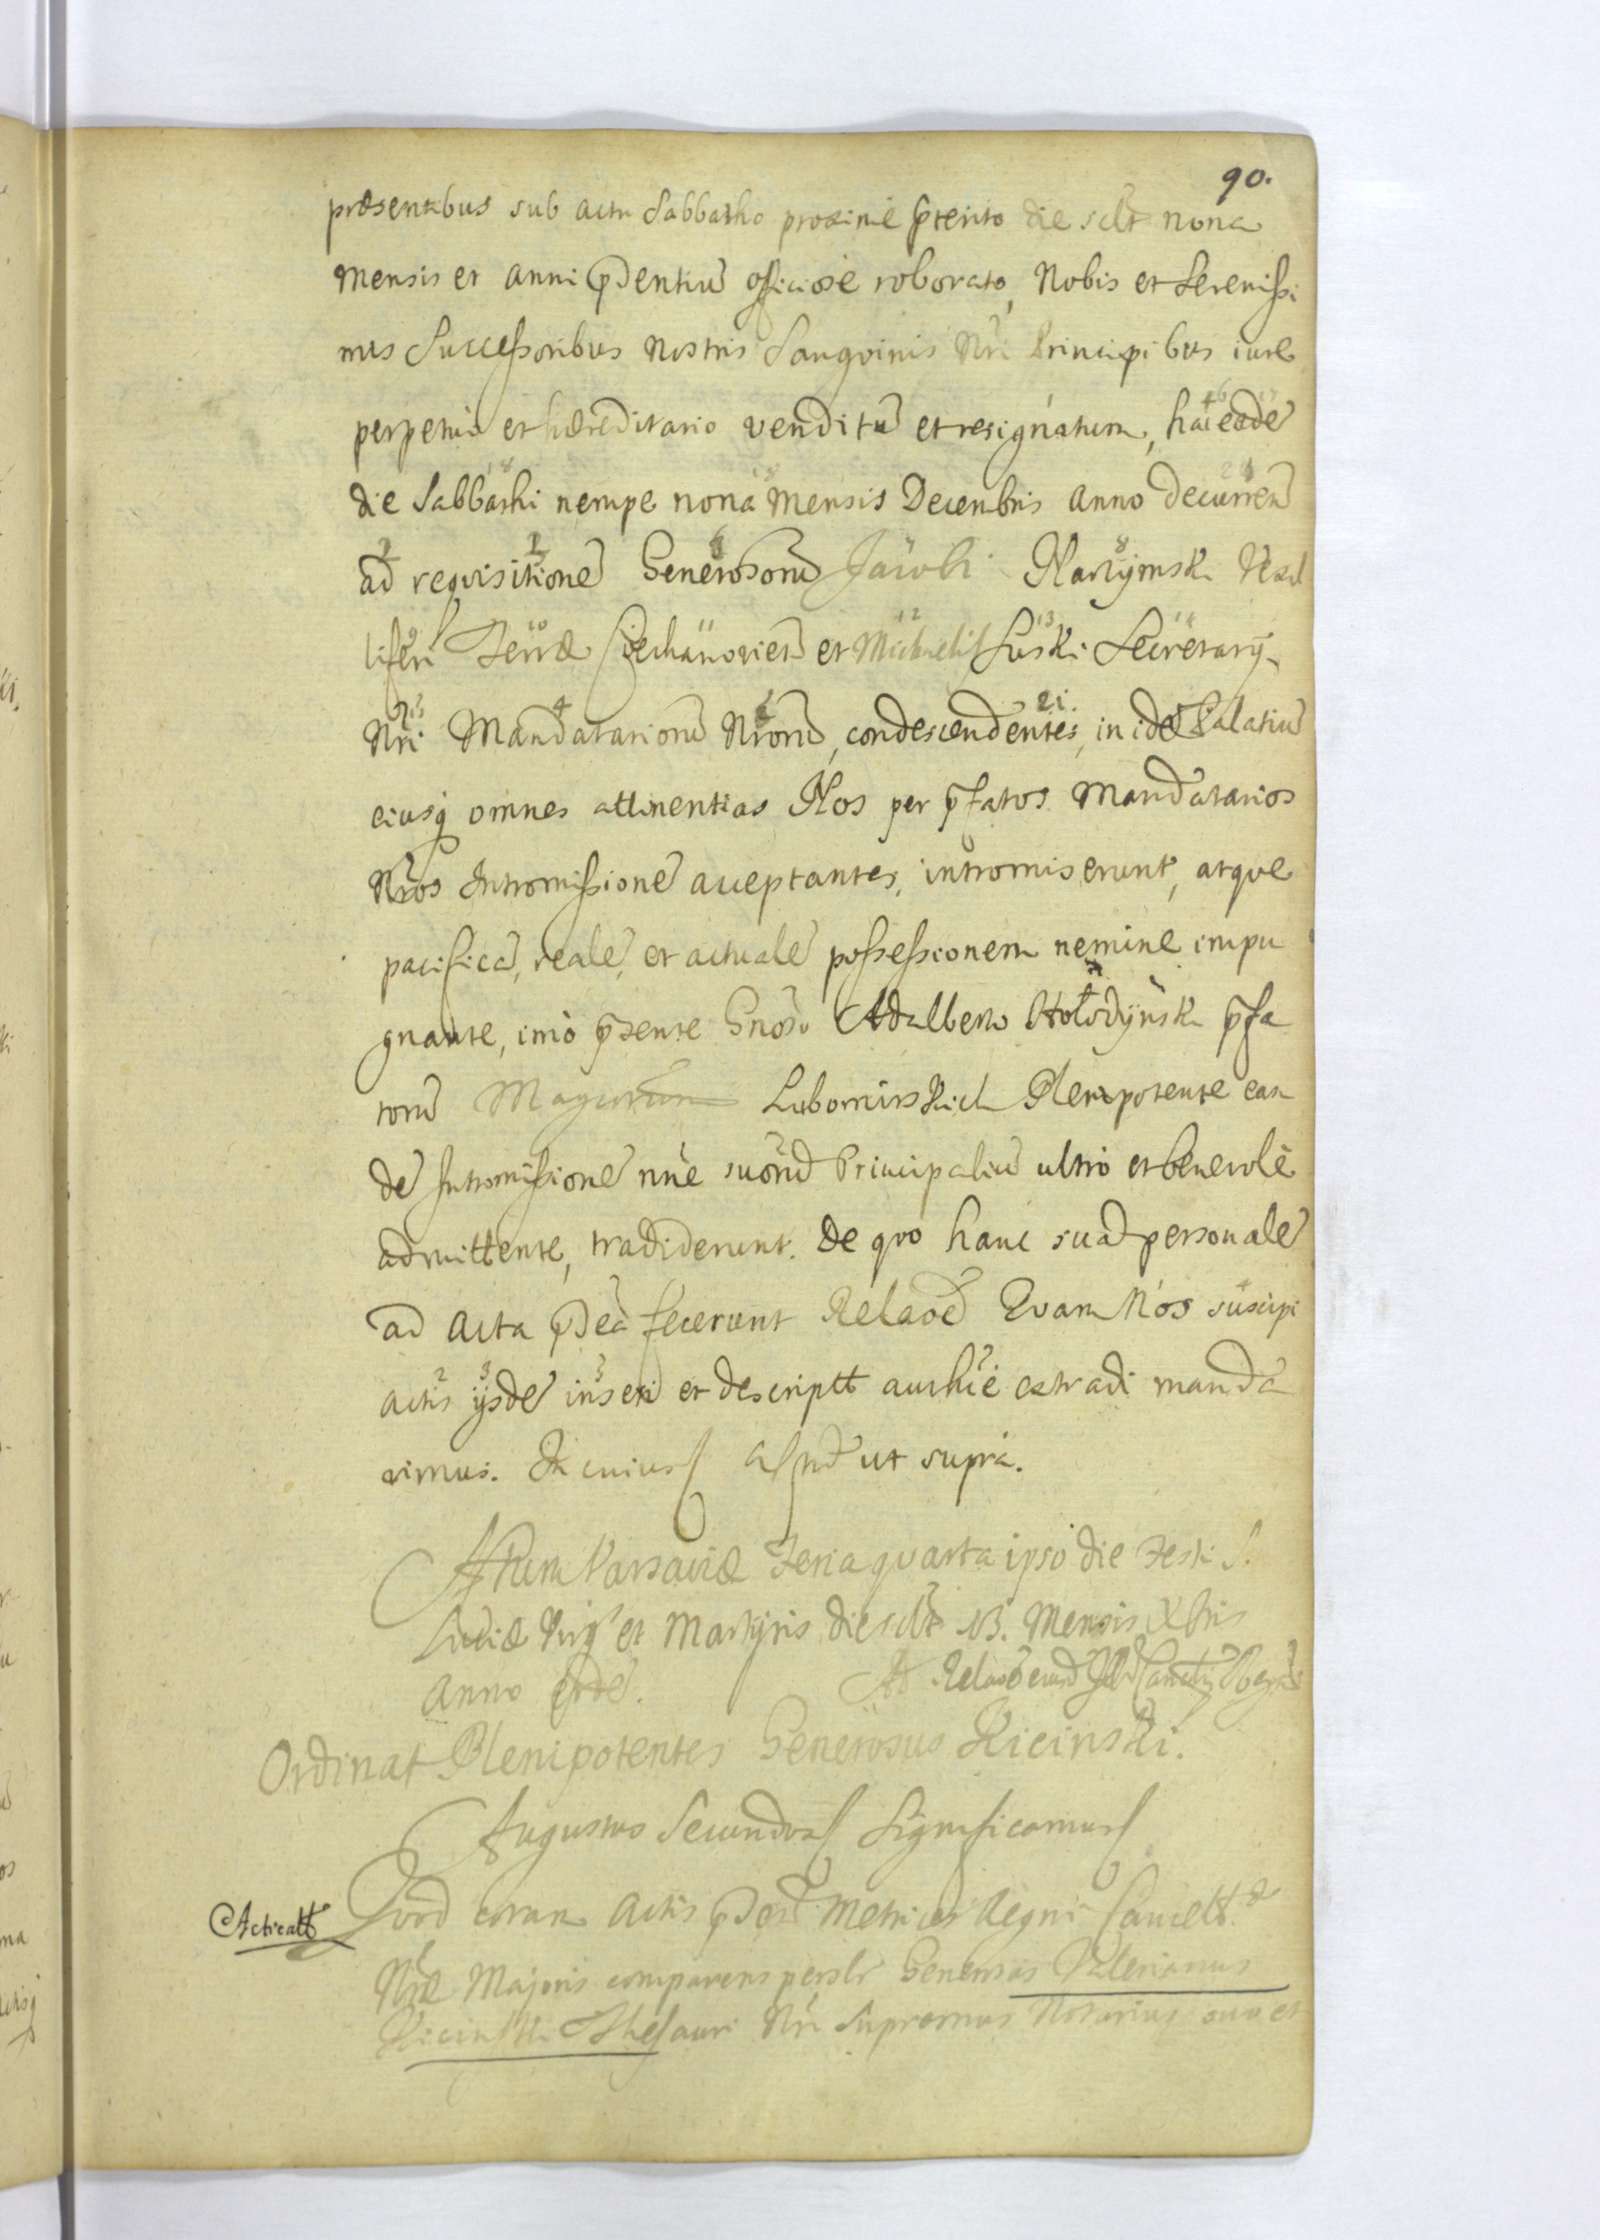 90.
præsentibus sub actu Sabbatho proxime p̃terito die sclt nona
Mensis et anni p̃dentiũ officiose roborato, Nobis et Serenissi
mis Successoribus Nostris Sangvinis Nri Principibus iure
perpetuo et hæreditario venditũ et resignatum, hac eadẽ
die Sabbathi nempe nona Mensis Decembris Anno decurreñ
ad reqvisitionẽ Generosorũ Jacobi Narzymski Vexil
liferi Terræ Ciechanovien̄ et Michaelis Suski Secretarij
Nri Mandatariorũ Nrorũ, condescendentes, in idẽ Palatiũ
eiusq omnes attinentias Nos per p̃fatos Mandatarios
Nros Intromissionẽ acceptantes, intromiserunt, atqve
pacificã, realẽ, et actualẽ possessionem nemine impu
gnante, imò p̃sente Gnõso Adalberto Hołodyński p̃fa
torũ Magcorum Lubomirskich Plenipotente ean
dẽ Intromissionẽ nñe suorũ Principaliũ ultrò et benevolè
admittente, tradiderunt. De qvo hanc suã personalẽ
ad Acta p̃dca fecerunt Relaõẽ Qvam Nos suscipi
actis ijsdẽ inseri et descriptt authcè extradi manda
vimus. In cuius ut supra.
Actum Varsaviæ Feria qvarta ipso die Festi S.
Luciæ Virg̃ et Martyris die sclt 13. Mensis Xbris
Anno eodẽ.
Ordinat Plenipotentes Generosus Kicinski.
Augustus Secundus Significamus
Acticatt
Qvod coram Actis p̃dead Metrices Regni Cancell.
Nræ Majoris comparens persolr Generosus Valerianus
Kicinski Thesauri Nri Supremus Notarius suo et